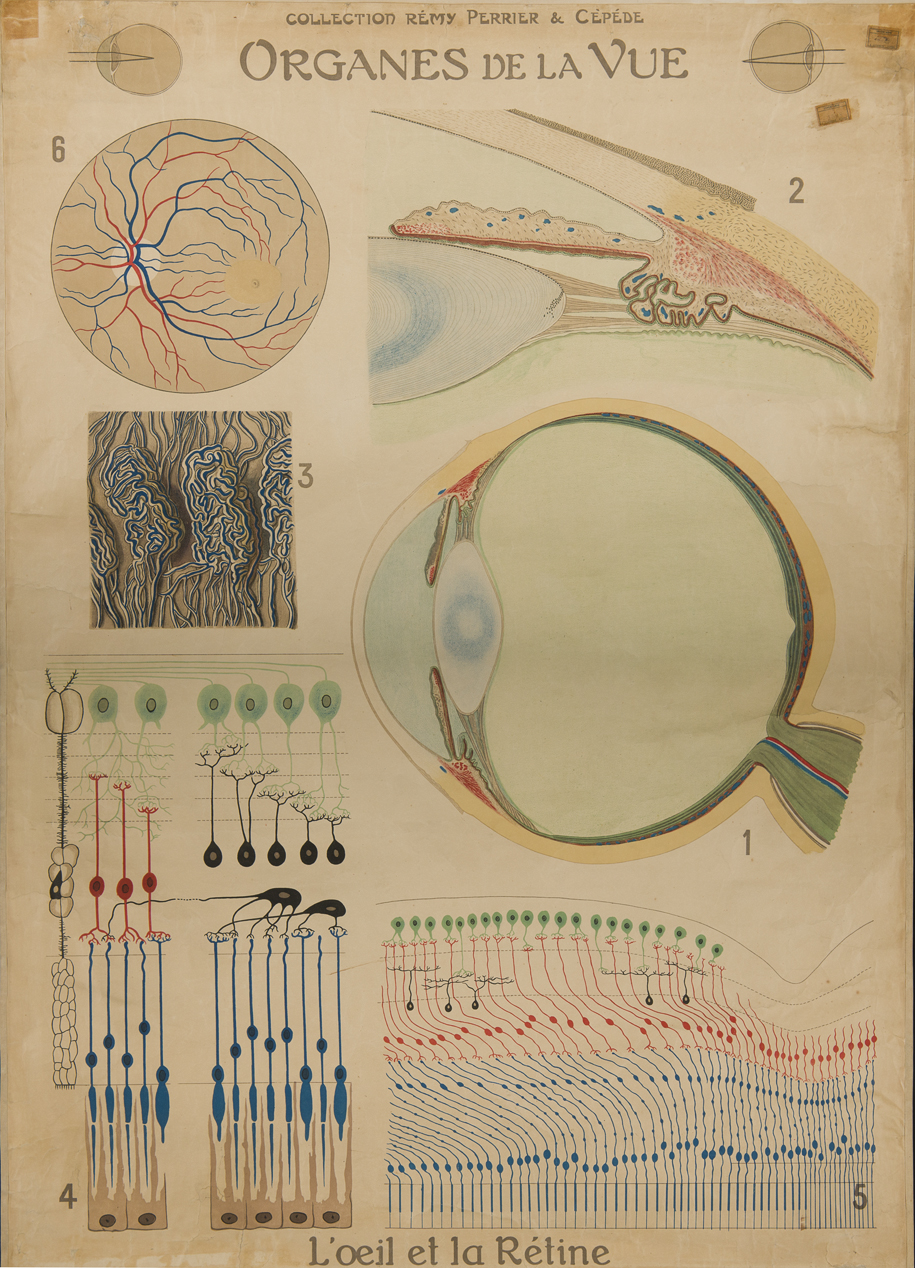 COLLECTION RÉMY PERRIER & CÈPÉDE
ORGANES DE LA VUE
6
2
3
1
4
5
L'oeil et la Rétine